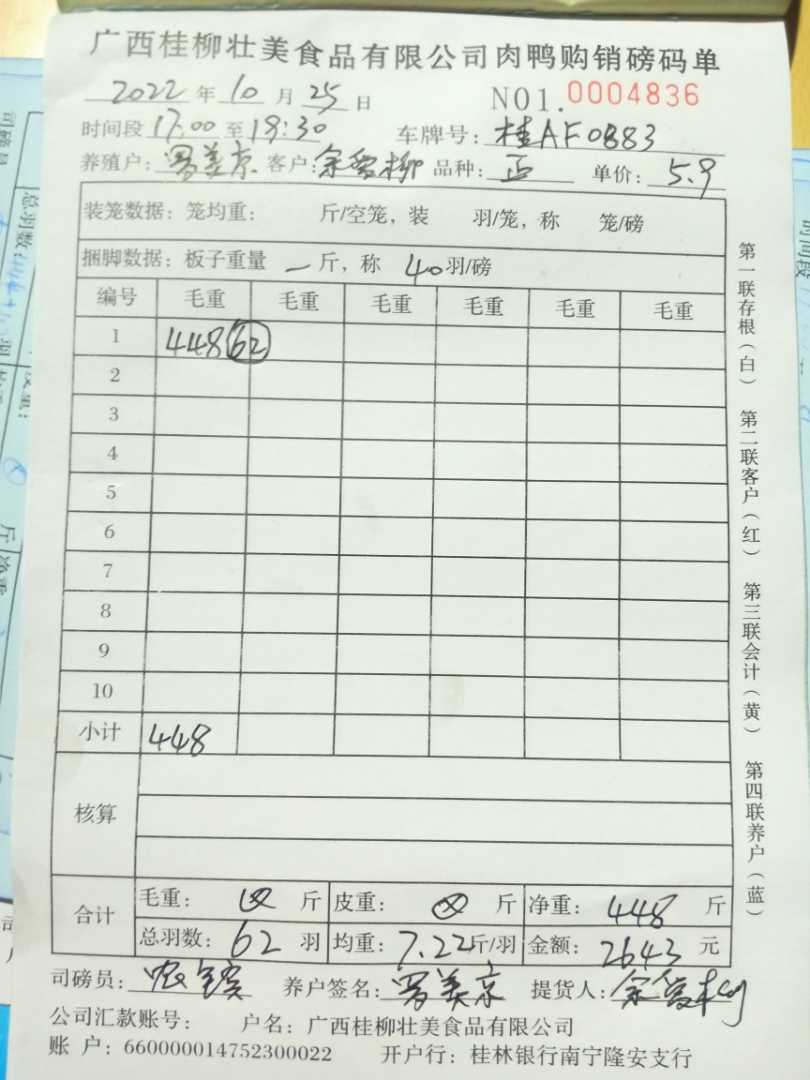 广西桂柳壮美食品有限公司肉鸭购销磅码单
2022 年 10 月 25 日 NO1.0004836
时间段 17:00 至 19:30 车牌号: 桂AF0883
养殖户: 罗美京 客户: 余 柳 品种: 正 单价: 5.9
装笼数据: 笼均重: 斤/空笼, 装 羽/笼, 称 笼/磅
捆脚数据: 板子重量 一 斤, 称 40 羽/磅
编号 毛重 毛重 毛重 毛重 毛重 毛重
1 448 62
2
3
4
5
6
7
8
9
10
小计 448
核算
合计 毛重: 斤 皮重: 斤 净重: 448 斤
总羽数: 62 羽 均重: 7.22 斤/羽 金额: 2643 元
司磅员: 养户签名: 罗美京 提货人: 余 柳
公司汇款账号: 户名: 广西桂柳壮美食品有限公司
账 户: 660000014752300022 开户行: 桂林银行南宁隆安支行
第一联存根(白) 第二联客户(红) 第三联会计(黄) 第四联养户(蓝)